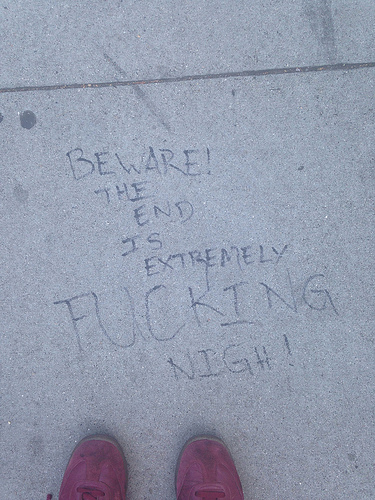 BEWARE!
THE
END
IS
EXTREMELY
FUCKING
NIGH!